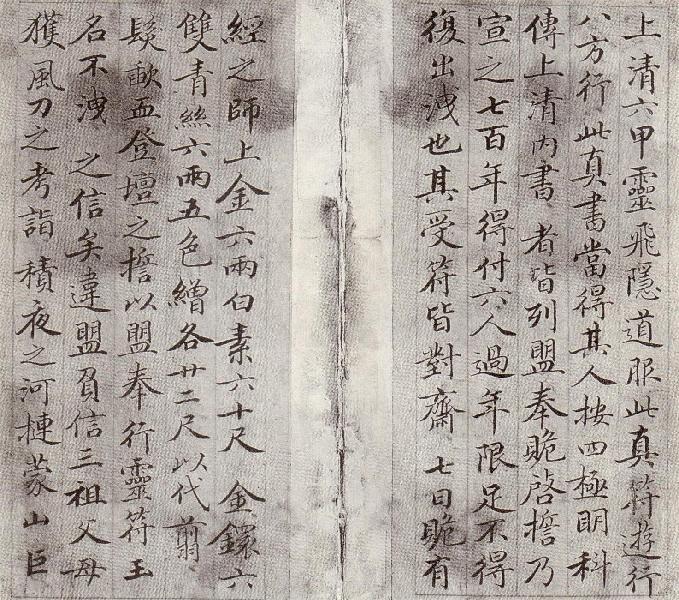 上清六甲靈飛隱道服此真符遊行
八方行此真書當得其人按四極明科
傳上清內書者皆列盟奉贶啓擔乃
宣之七百年得付六人過年限足不得
復出洩也其受符皆對齋七日贶有
經之師上金六兩白素六十尺金鐶六
雙青絲六兩五色繒各廿二尺以代翦
髮歃血登壇之擔以盟奉行靈符玉
名不洩之信矣違盟負信三祖父母
獲風刀之考詣積夜之河槤蒙山巨